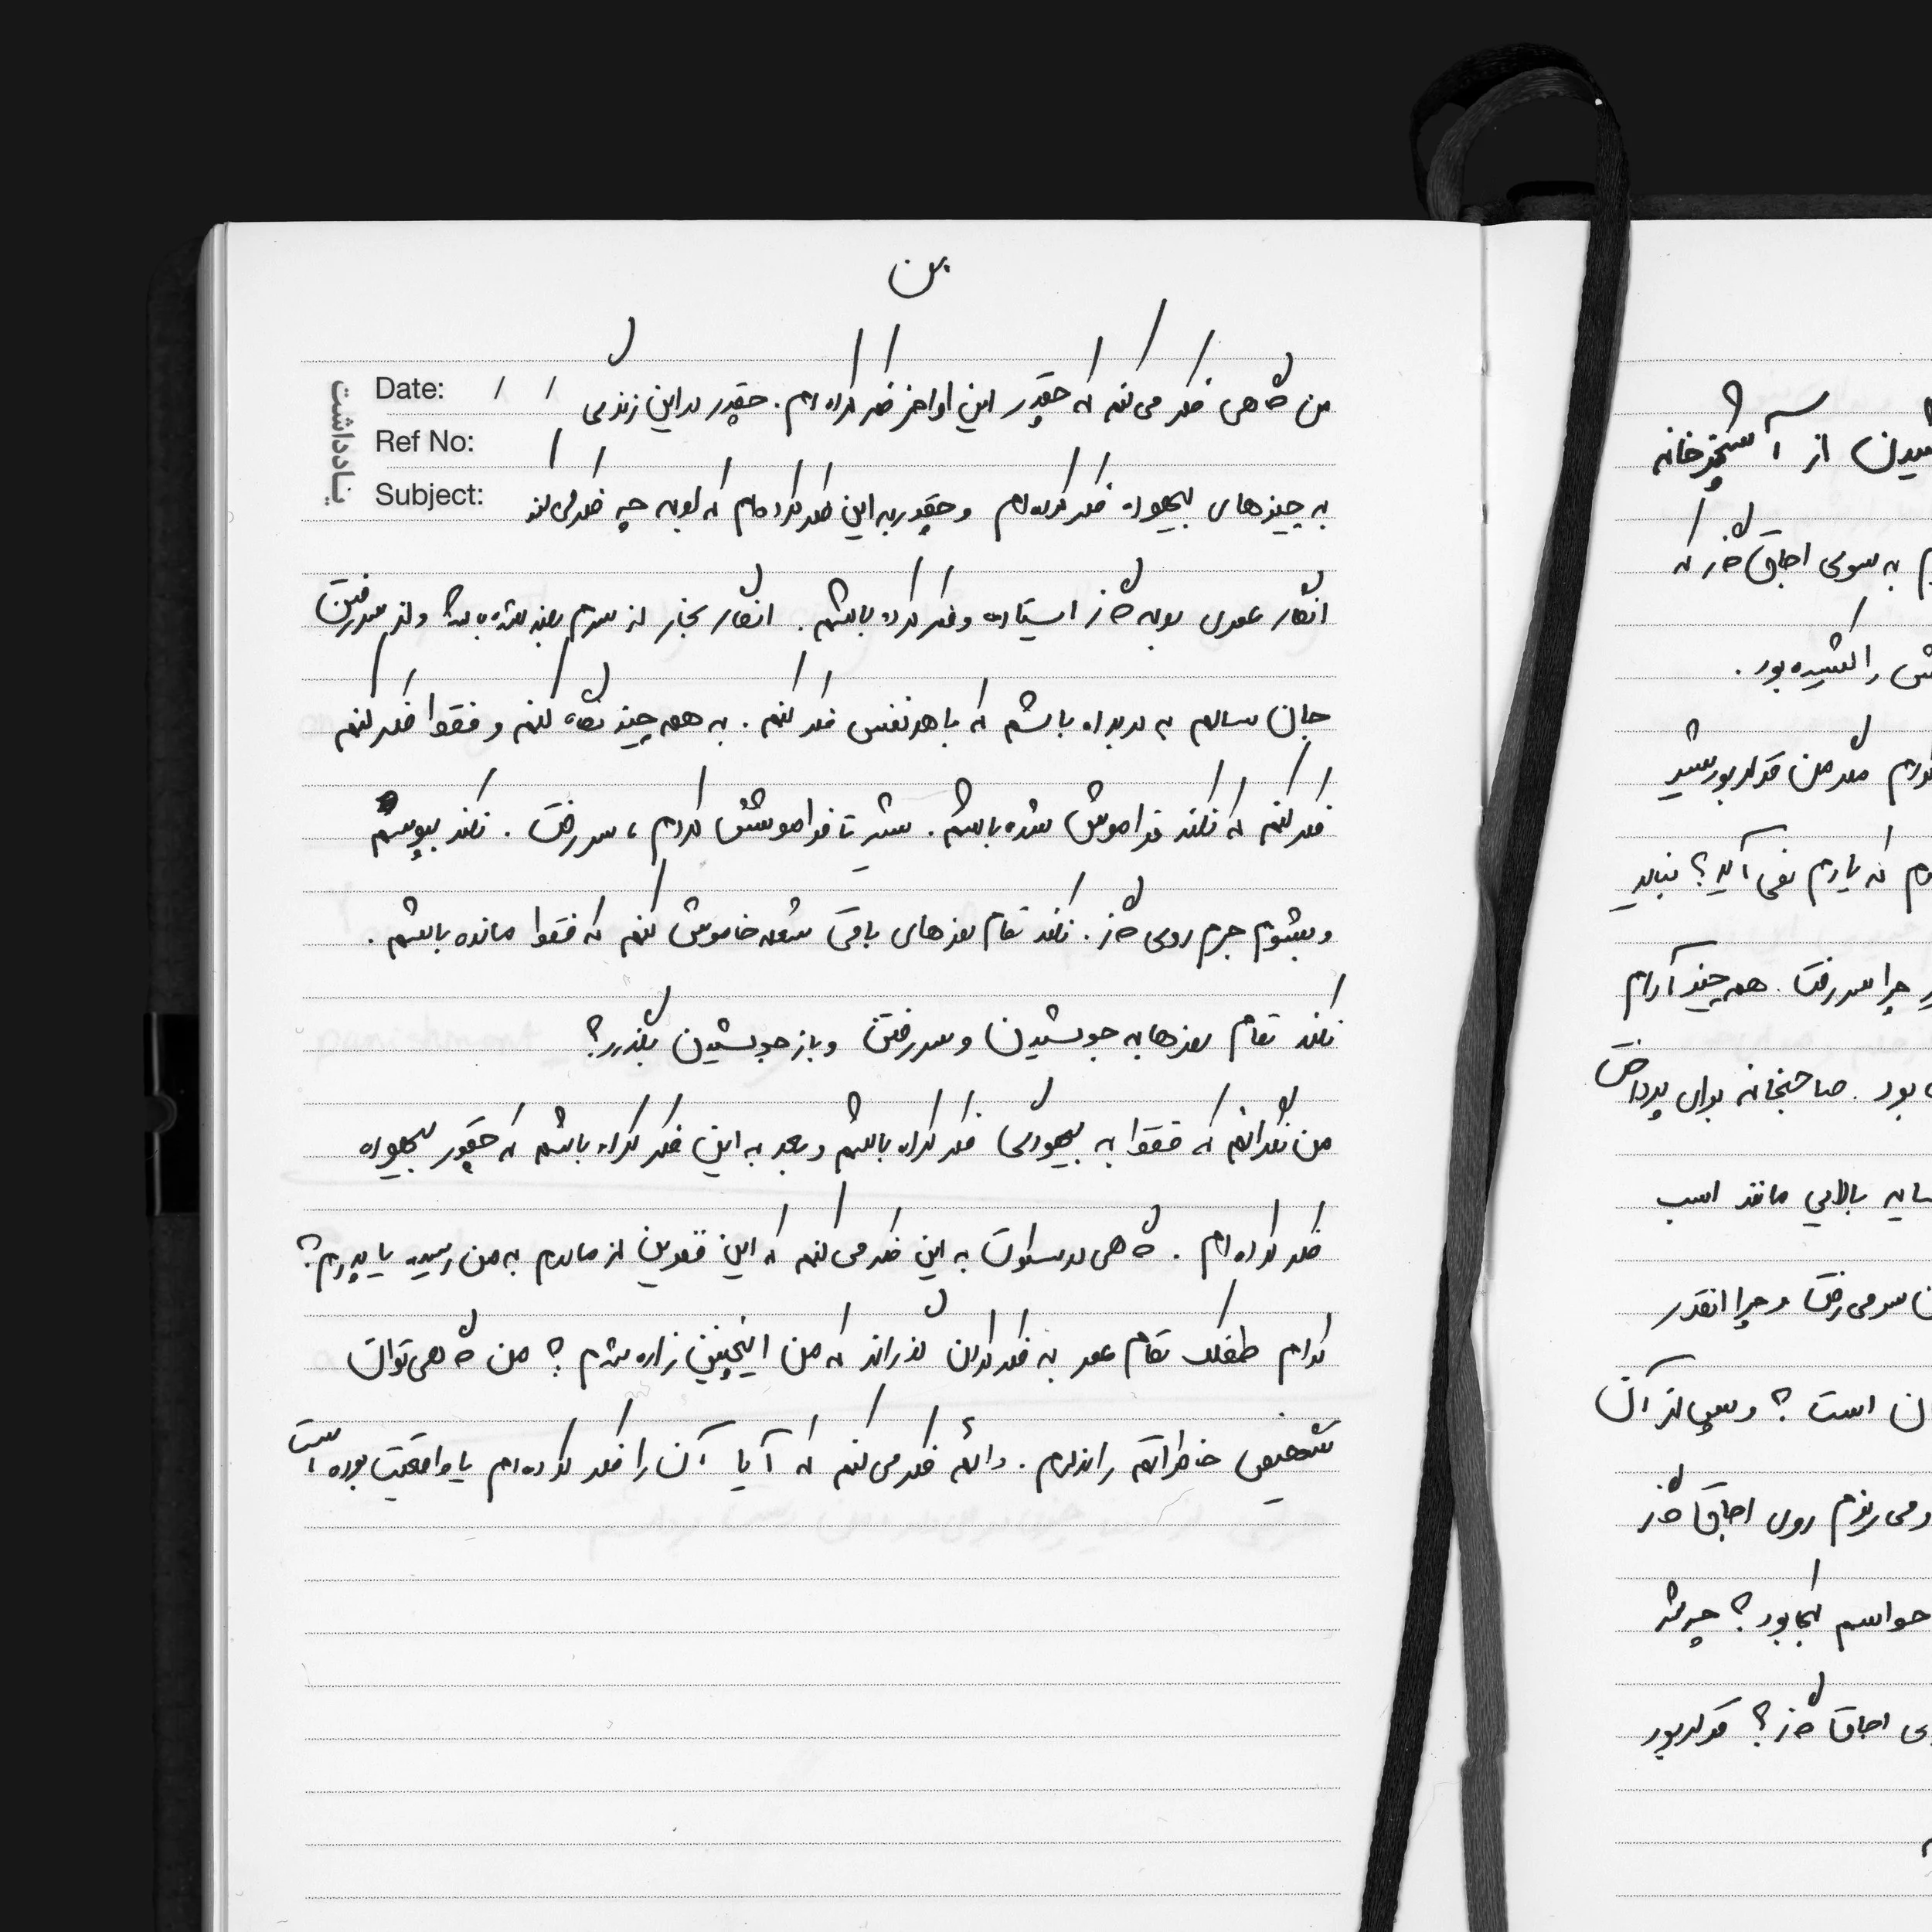 من
Date: / /
Ref No:
Subject:
یادداشت
من گاهی فکر می‌کنم که چقدر این اواخر فکر کرده‌ام. چقدر در این زندگی
به چیزهای بیهوده فکر کرده‌ام و چقدر به این فکر کرده‌ام که او به چه فکر می‌کند
انگار عمری روبه گاز ایستاده و فکر کرده باشم. انگار بخار از سرم بلند شده باشد و از سر رفتن
جان سالم به در برده باشم که با هر نفس فکر کنم. به همه چیز نگاه کنم و فقط فکر کنم
فکر کنم که نکند فراموش شده باشم. شیر تا فراموشش کردم، سر رفت. نکند بپوسم
و بشوم جرم روی گاز. نکند تمام روزهای باقی شعله خاموش کنم که فقط مانده باشم.
نکند تمام روزها به جوشیدن و سر رفتن و باز جوشیدن بگذرد؟
من نگرانم که فقط به بیهودگی فکر کرده باشم و بعد به این فکر کرده باشم که چقدر بیهوده
فکر کرده‌ام. گاهی در سکوت به این فکر می‌کنم که این نفرین از مادرم به من رسیده یا پدرم؟
کدام طفلک تمام عمر به فکر کردن گذراند که من اینچنین زاده شدم؟ من گاهی توان
تشخیص خاطراتم را ندارم. دائم فکر می‌کنم که آیا آن را فکر کرده‌ام یا واقعیت بوده است
از آشپزخانه
به سوی اجاق گاز که
را کشیده بود.
مگر من قرار بود شیر
که یادم نمی‌آید؟ نباید
چرا سر رفت. همه چیز آرام
بود. صاحبخانه برای پرداخت
بالایی مانند اسب
سر می‌رفت و چرا انقدر
است؟ و پس از آن
می‌ریزم روی اجاق گاز
حواسم کجا بود؟ چه شد
اجاق گاز؟ قرار بود